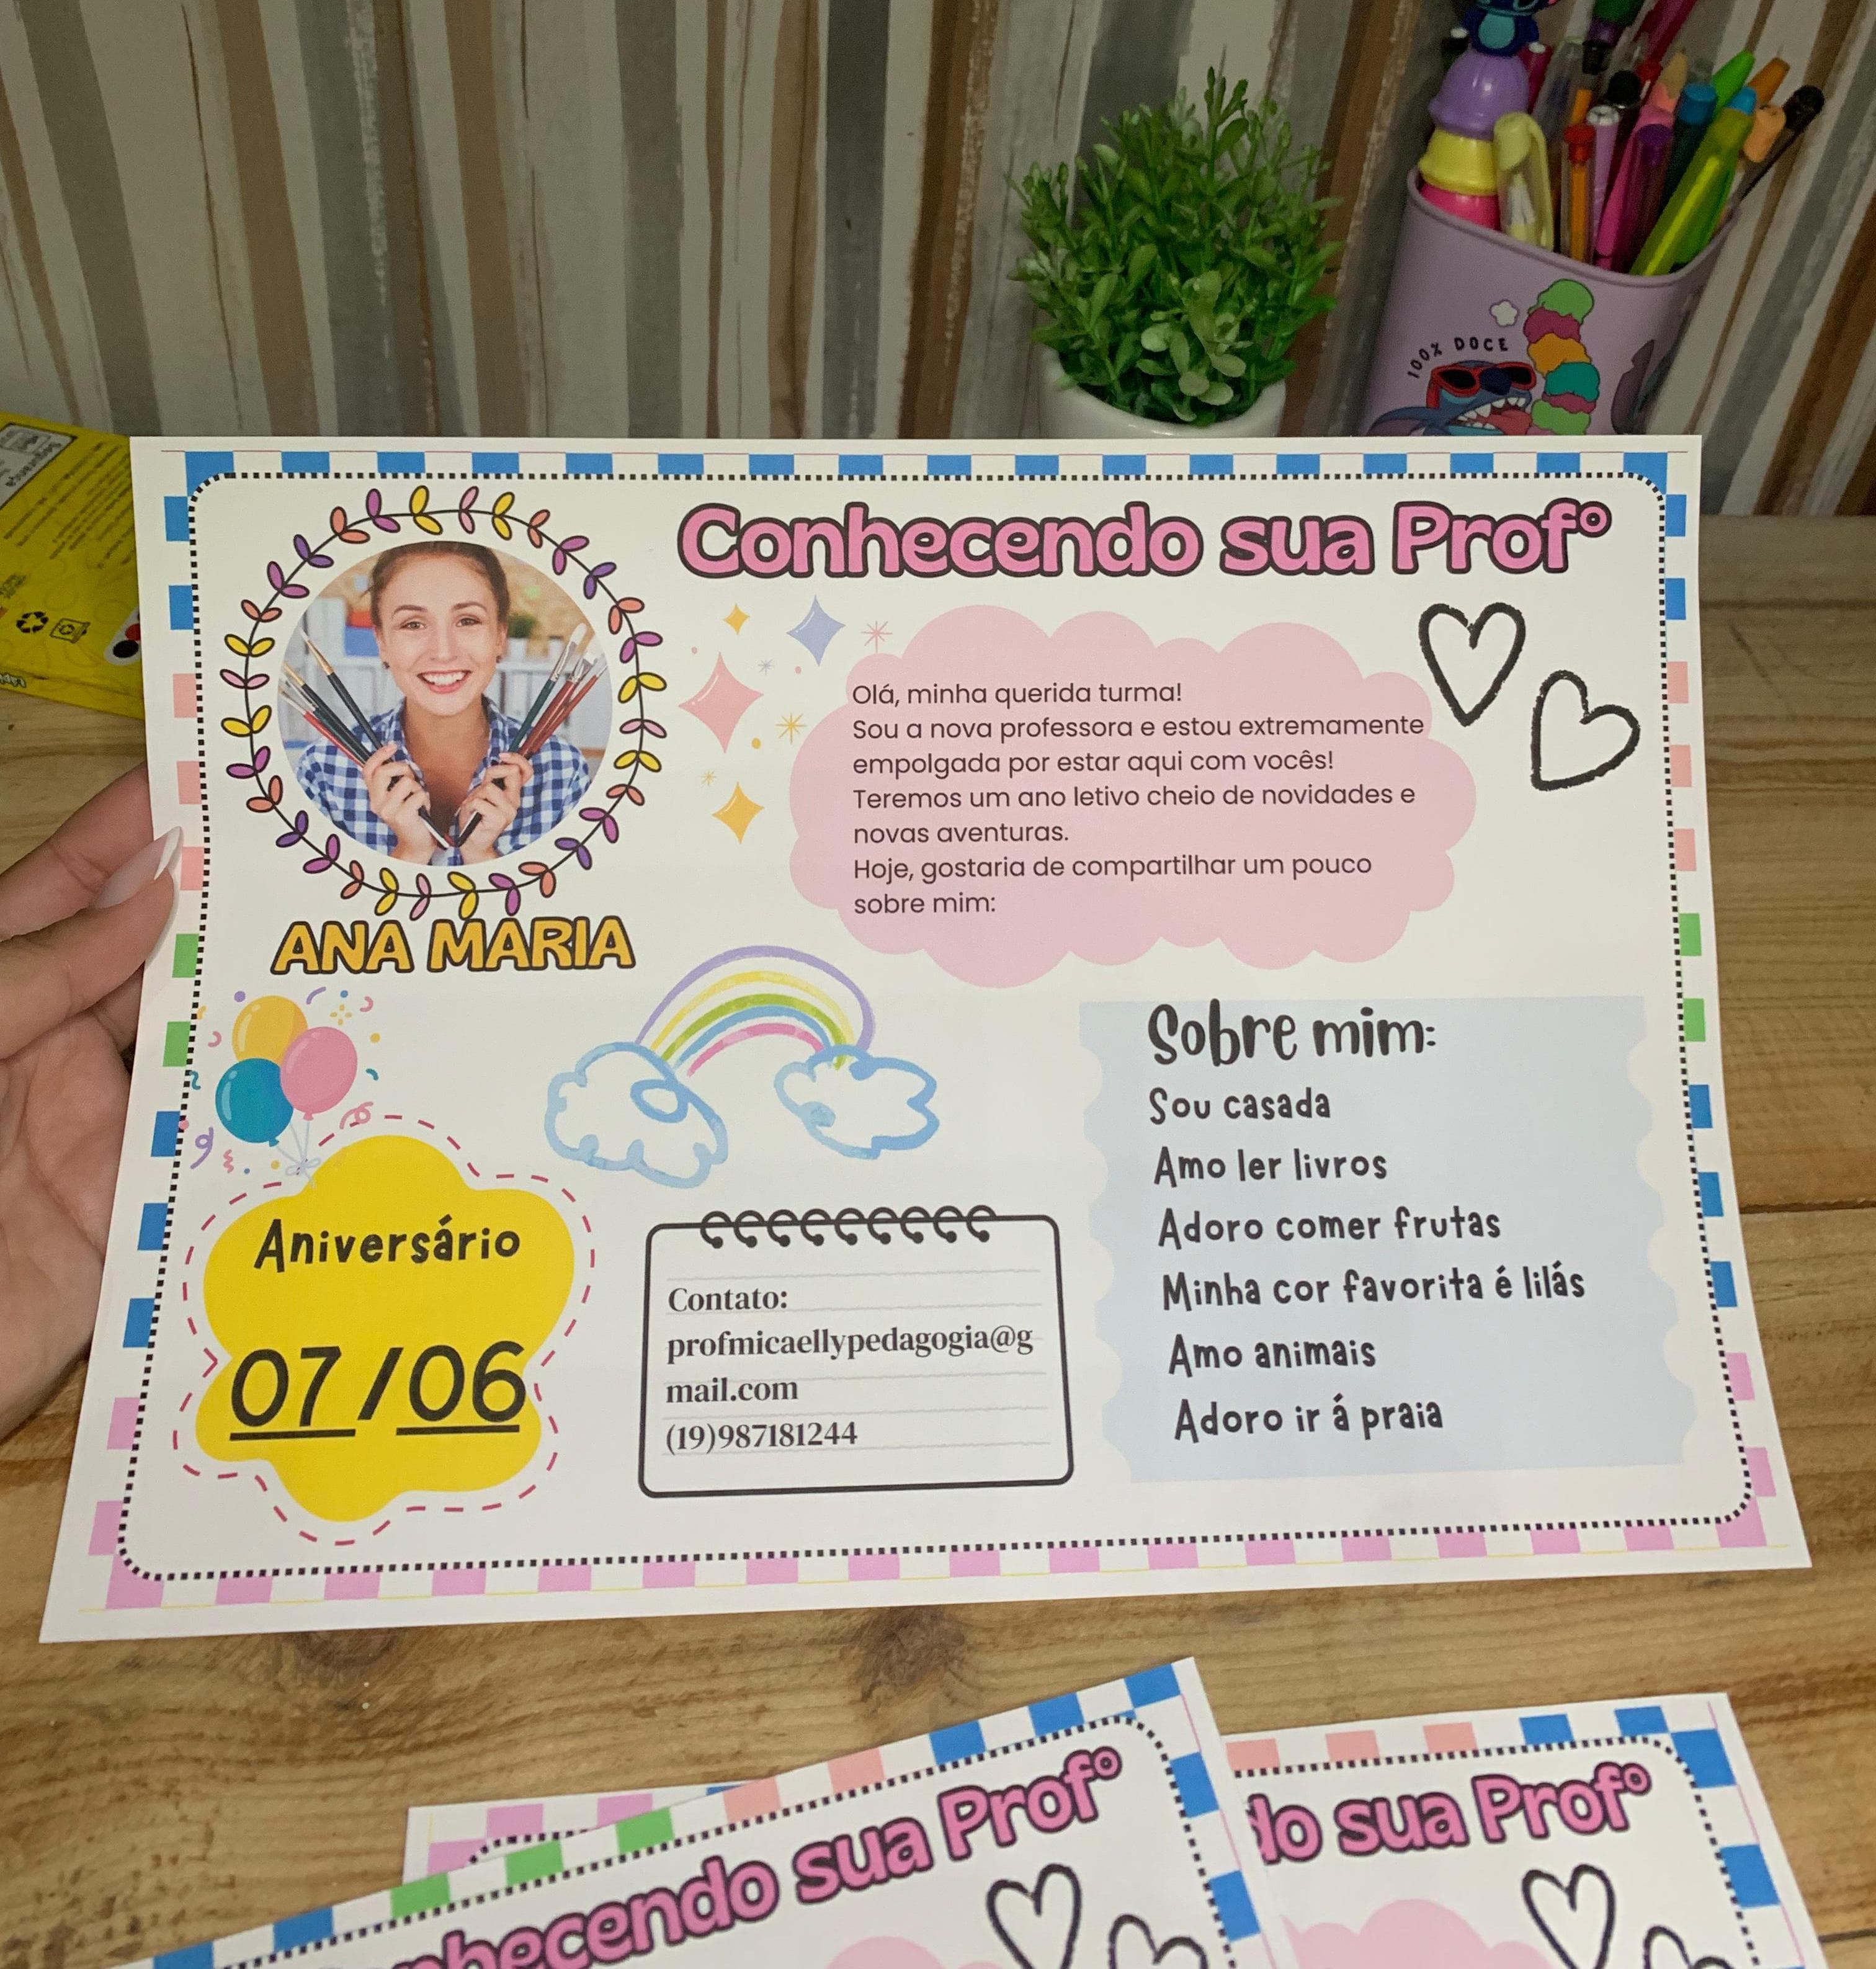 100% DOCE
Conhecendo sua Profº
Olá, minha querida turma!
Sou a nova professora e estou extremamente
empolgada por estar aqui com vocês!
Teremos um ano letivo cheio de novidades e
novas aventuras.
Hoje, gostaria de compartilhar um pouco
sobre mim:
ANA MARIA
Aniversário
07/06
Contato:
profmicaellypedagogia@g
mail.com
(19)987181244
Sobre mim:
Sou casada
Amo ler livros
Adoro comer frutas
Minha cor favorita é lilás
Amo animais
Adoro ir á praia
nhecendo sua Profº
do sua Profº